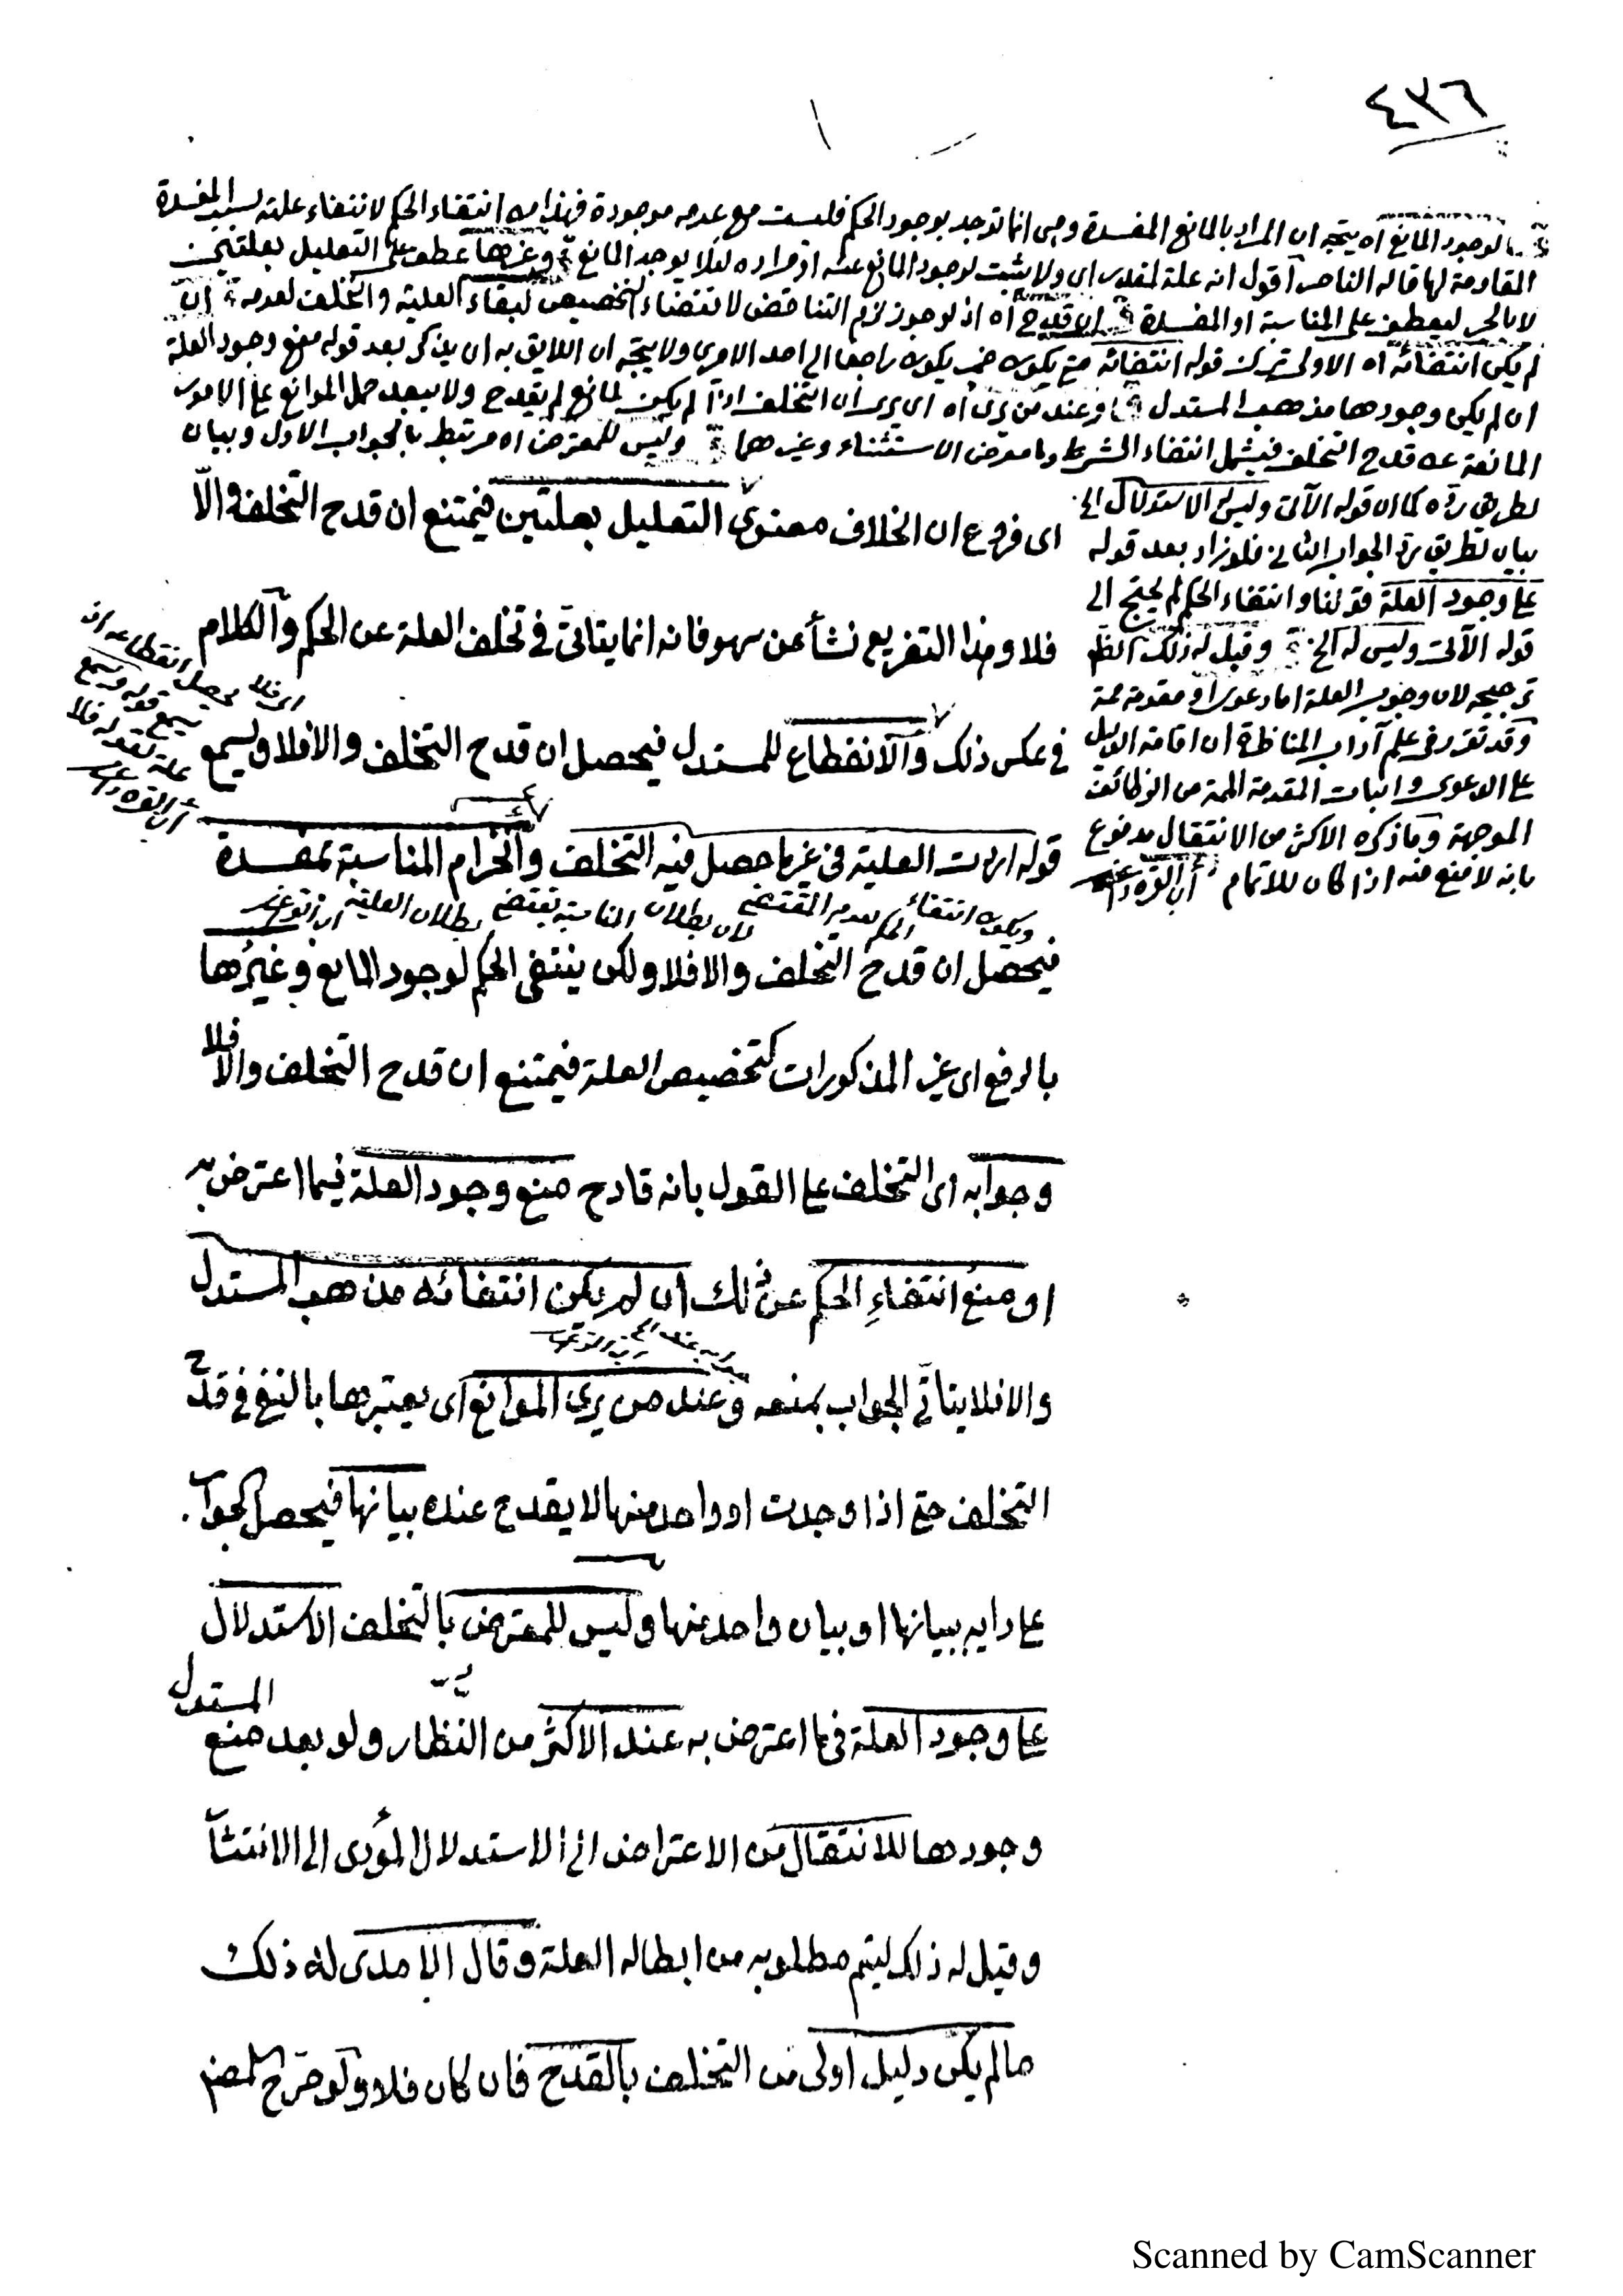 ٤٣٦
لوجود المانع اه يتجه ان المراد بالمانع المفسدة وهى انما توجد بوجود الحكم فليست مع عدمه موجودة فهذا من انتفاء الحكم لانتفاء علته بسبب المفسدة
المقاومة لها قاله الناصر اقول انه علة لمقدر اى ولا يثبت لوجود المانع عنه اذ مراده لئلا يوجد المانع وغيرها عطف على التعليل بعلتين
لا بالجر ليعطف على المناسبة او المفسدة ان قدح اه اذ لو جوز لزم التناقض لاقتضاء التخصيص لبقاء العلية والتخلف لعدمه ان
لم يكن انتفائه اه الاولى ترك قوله انتفائه حتى يكون ضمير يكون راجعا الى احد الامرين ولا يتجه ان اللايق به ان يذكر بعد قوله منع وجود العلة
ان لم يكن وجودها مذهب المستدل وعند من يرى اه اى يرى ان التخلف اذا لم يكن لمانع لم يقدح ولا يبعد حمل الموانع على الامور
المانعة عن قدح التخلف فيشمل انتفاء الشرط وما معرض الاستثناء وغيرهما وليس للمعترض اه مرتبط بالجواب الاول وبيان
لطريق رده كما ان قوله الآتى وليس الاستدلال الى
بيان لطريق رد الجواب الثانى فلو زاد بعد قوله
على وجود العلة قولنا وانتفاء الحكم لم يحتج الى
قوله الآتى وليس له الخ وقيل له ذلك الظ
ترجيحه لان وجود العلة اما دعوى او مقدمة مهمة
وقد تقرر فى علم آداب المناظرة ان اقامة الدليل
على الدعوى واثبات المقدمة المهمة من الوظائف
الموجهة وما ذكره الاكثر من الانتقال مدفوع
بانه لا منع منه اذا كان للاتمام
اى فروع ان الخلاف معنوى التعليل بعلتين فيمتنع ان قدح التخلف والّا
فلا وهذا التفريع نشأ عن سهو فانه انما يتاتى فى تخلف العلة عن الحكم والكلام
فى عكس ذلك والانقطاع للمستدل فيحصل ان قدح التخلف والا فلا ويسمع
قوله اردت العلية فى غير ما حصل فيه التخلف وانخرام المناسبة بمفسدة
ويكون انتفاء الحكم لعدم المقتضى
لان بطلان المناسبة يقتضى بطلان العلية
فيحصل ان قدح التخلف والا فلا ولكن ينتفى الحكم لوجود المانع وغيرُها
بالرفع اى غير المذكورات كتخصيص العلة فيمتنع ان قدح التخلف والا فلا
وجوابه اى التخلف على القول بانه قادح منع وجود العلة فيما اعترض به
او منعُ انتفاءِ الحكم عن ذلك ان لم يكن انتفائه مذهب المستدل
والا فلا يتأتى الجواب بمنعه وعند من يرى الموانع اى يعتبرها بالنفى فى قدح
التخلف حتى اذا وجدت او واحد منها لا يقدح عنده بيانها فيحصل الجواب
على رايه ببيانها او بيان واحد منها وليس للمعترض بالتخلف الاستدلال
على وجود العلة فيما اعترض به عند الاكثر من النظار ولو بعد منع المستدل
وجودها للانتقال من الاعتراض الى الاستدلال المؤدى الى الانتشا
وقيل له ذلك ليتم مطلوبه من ابطاله العلة وقال الآمدى له ذلك
ما لم يكن دليل اولى من التخلف بالقدح فان كان فلا ولو صرّح
Scanned by CamScanner